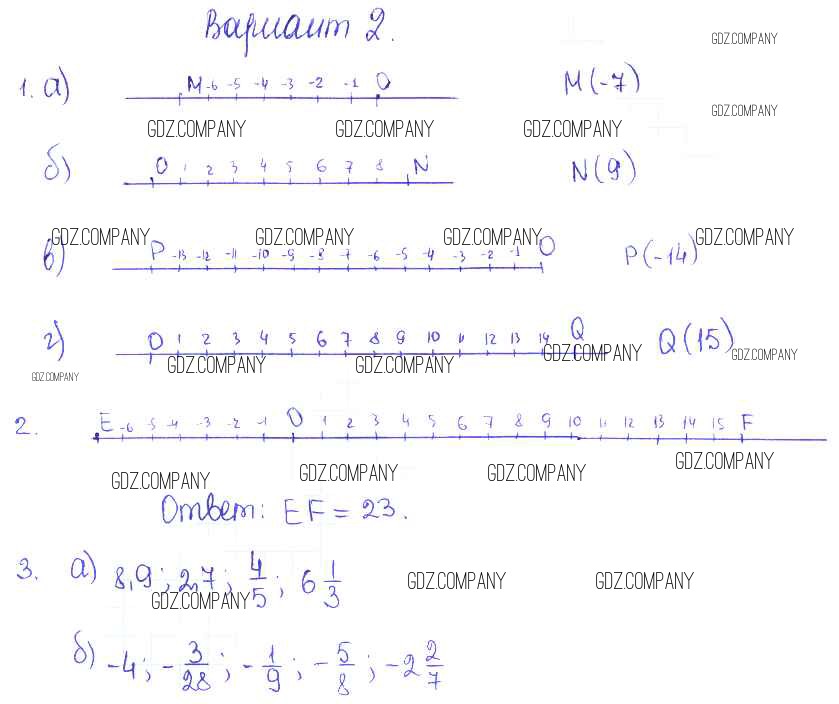 Вариант 2.
GDZ.COMPANY
1. а) M -6 -5 -4 -3 -2 -1 O M(-7)
GDZ.COMPANY
GDZ.COMPANY GDZ.COMPANY GDZ.COMPANY
б) O 1 2 3 4 5 6 7 8 N N(9)
GDZ.COMPANY GDZ.COMPANY GDZ.COMPANY GDZ.COMPANY
в) P -13 -12 -11 -10 -9 -8 -7 -6 -5 -4 -3 -2 -1 O P(-14)
г) O 1 2 3 4 5 6 7 8 9 10 11 12 13 14 Q Q(15)
GDZ.COMPANY GDZ.COMPANY GDZ.COMPANY GDZ.COMPANY
GDZ.COMPANY
2. E -6 -5 -4 -3 -2 -1 O 1 2 3 4 5 6 7 8 9 10 11 12 13 14 15 F
GDZ.COMPANY GDZ.COMPANY GDZ.COMPANY GDZ.COMPANY
Ответ: EF = 23.
3. а) 8,9; 2,7; 4/5; 6 1/3
GDZ.COMPANY GDZ.COMPANY GDZ.COMPANY
б) -4; -3/28; -1/9; -5/8; -2 2/7